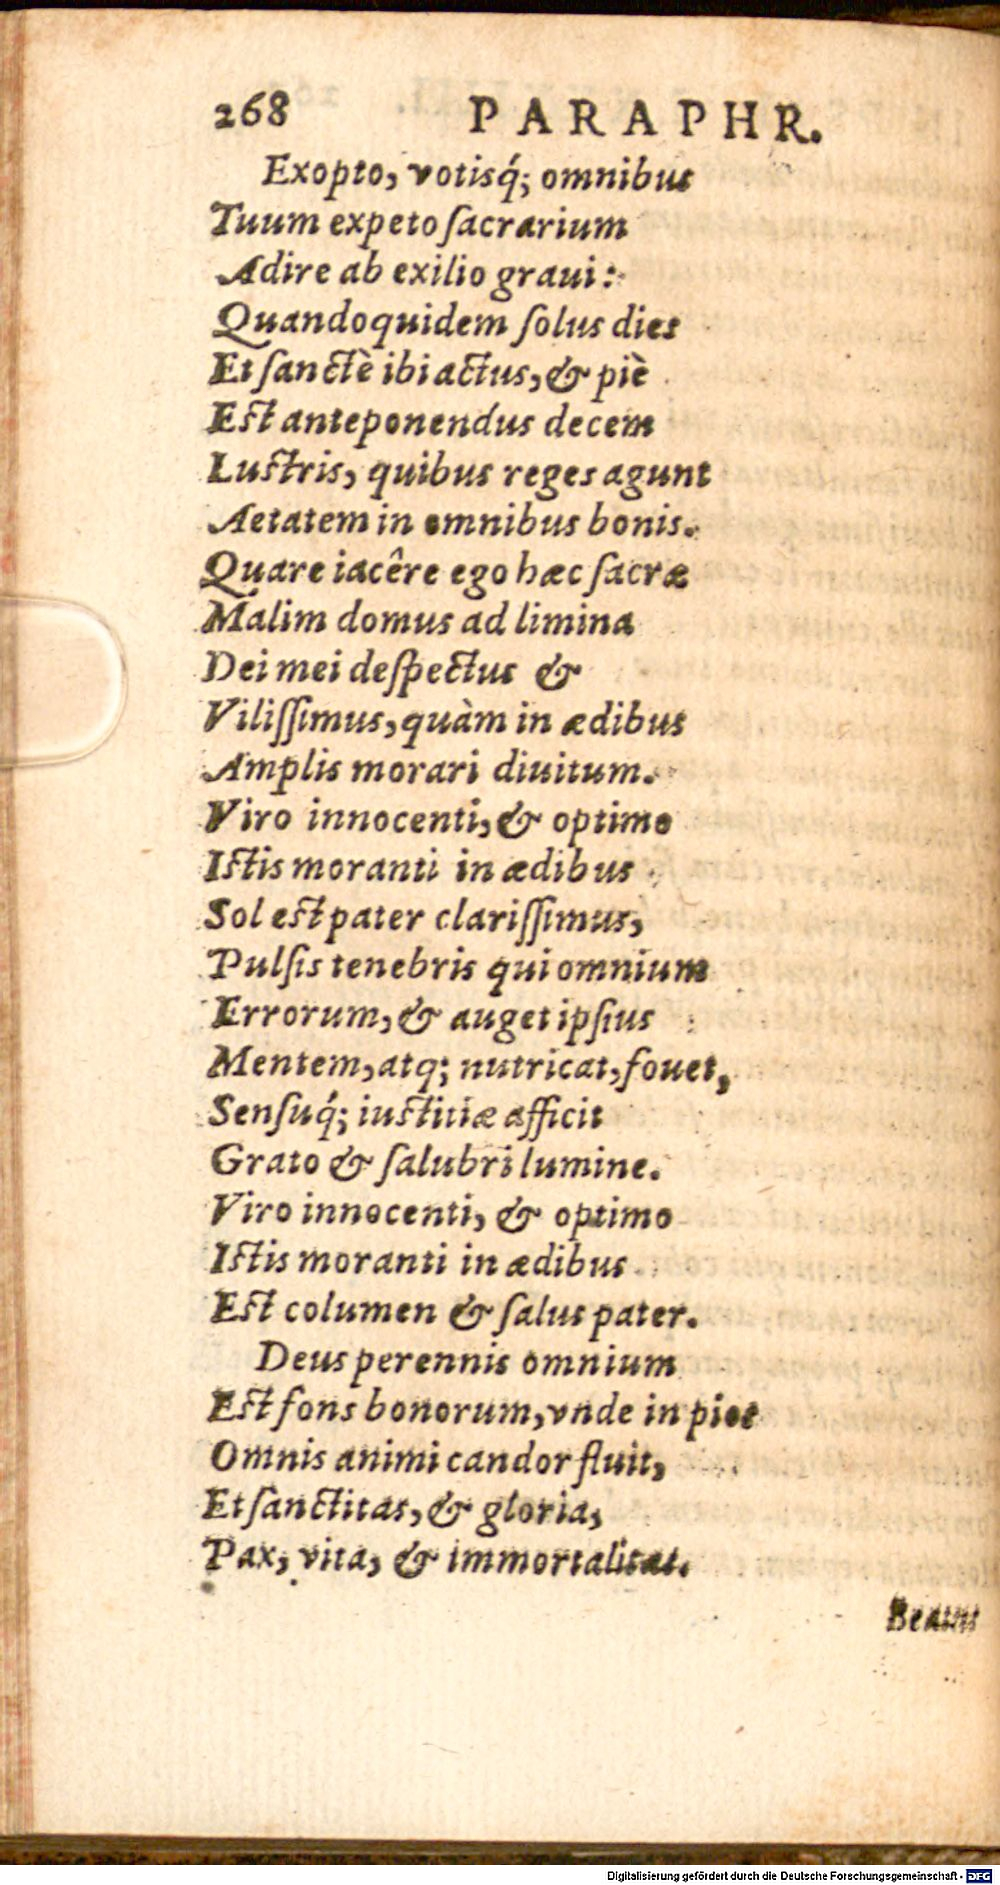 268 PARAPHR.
Exopto, votisq́; omnibus
Tuum expeto ſacrarium
Adire ab exilio graui:
Quandoquidem ſolus dies
Et ſanctè ibi actus, & piè
Est anteponendus decem
Lustris, quibus reges agunt
Aetatem in omnibus bonis.
Quare iacêre ego hæc ſacræ
Malim domus ad limina
Dei mei deſpectus &
Viliſſimus, quàm in ædibus
Amplis morari diuitum.
Viro innocenti, & optimo
Istis moranti in ædibus
Sol est pater clariſſimus,
Pulſis tenebris qui omnium
Errorum, & auget ipſius
Mentem, atq; nutricat, fouet,
Senſuq́; iustitiæ afficit
Grato & ſalubri lumine.
Viro innocenti, & optimo
Istis moranti in ædibus
Est columen & ſalus pater.
Deus perennis omnium
Est fons bonorum, vnde in pios
Omnis animi candor fluit,
Et ſanctitas, & gloria,
Pax, vita, & immortalitas.
Beatus
Digitalisierung gefördert durch die Deutsche Forschungsgemeinschaft - DFG